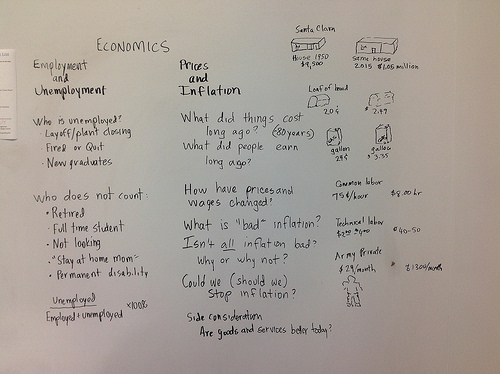 ECONOMICS
Employment
and
Unemployment
Who is unemployed?
· Layoff/plant closing
· Fired or Quit
· New graduates
Who does not count:
• Retired
• Full time student
• Not looking
• "Stay at home mom"
• Permanent disability
Unemployed
Employed + unemployed
×100%
Prices
and
Inflation
What did things cost
long ago? (80 years)
What did people earn
long ago?
How have prices and
wages changed?
What is "bad" inflation?
Isn't all inflation bad?
Why or why not?
Could we (should we)
Stop inflation?
Side consideration
Are goods and services better today?
Santa Clara
House 1950
$9,500
Same house
2015 $1.05 million
Loaf of bread
20¢
2.49
gallon
29¢
gallon
$3.35
Common labor
75¢/hour
$8.00 hr
Technical labor
$40-50
Army Private
$29/month
$1304/month